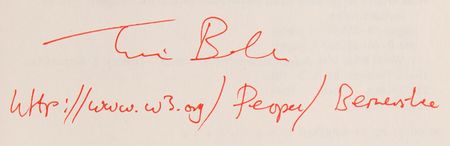 Tim B-L
http://www.w3.org/People/Berners-Lee